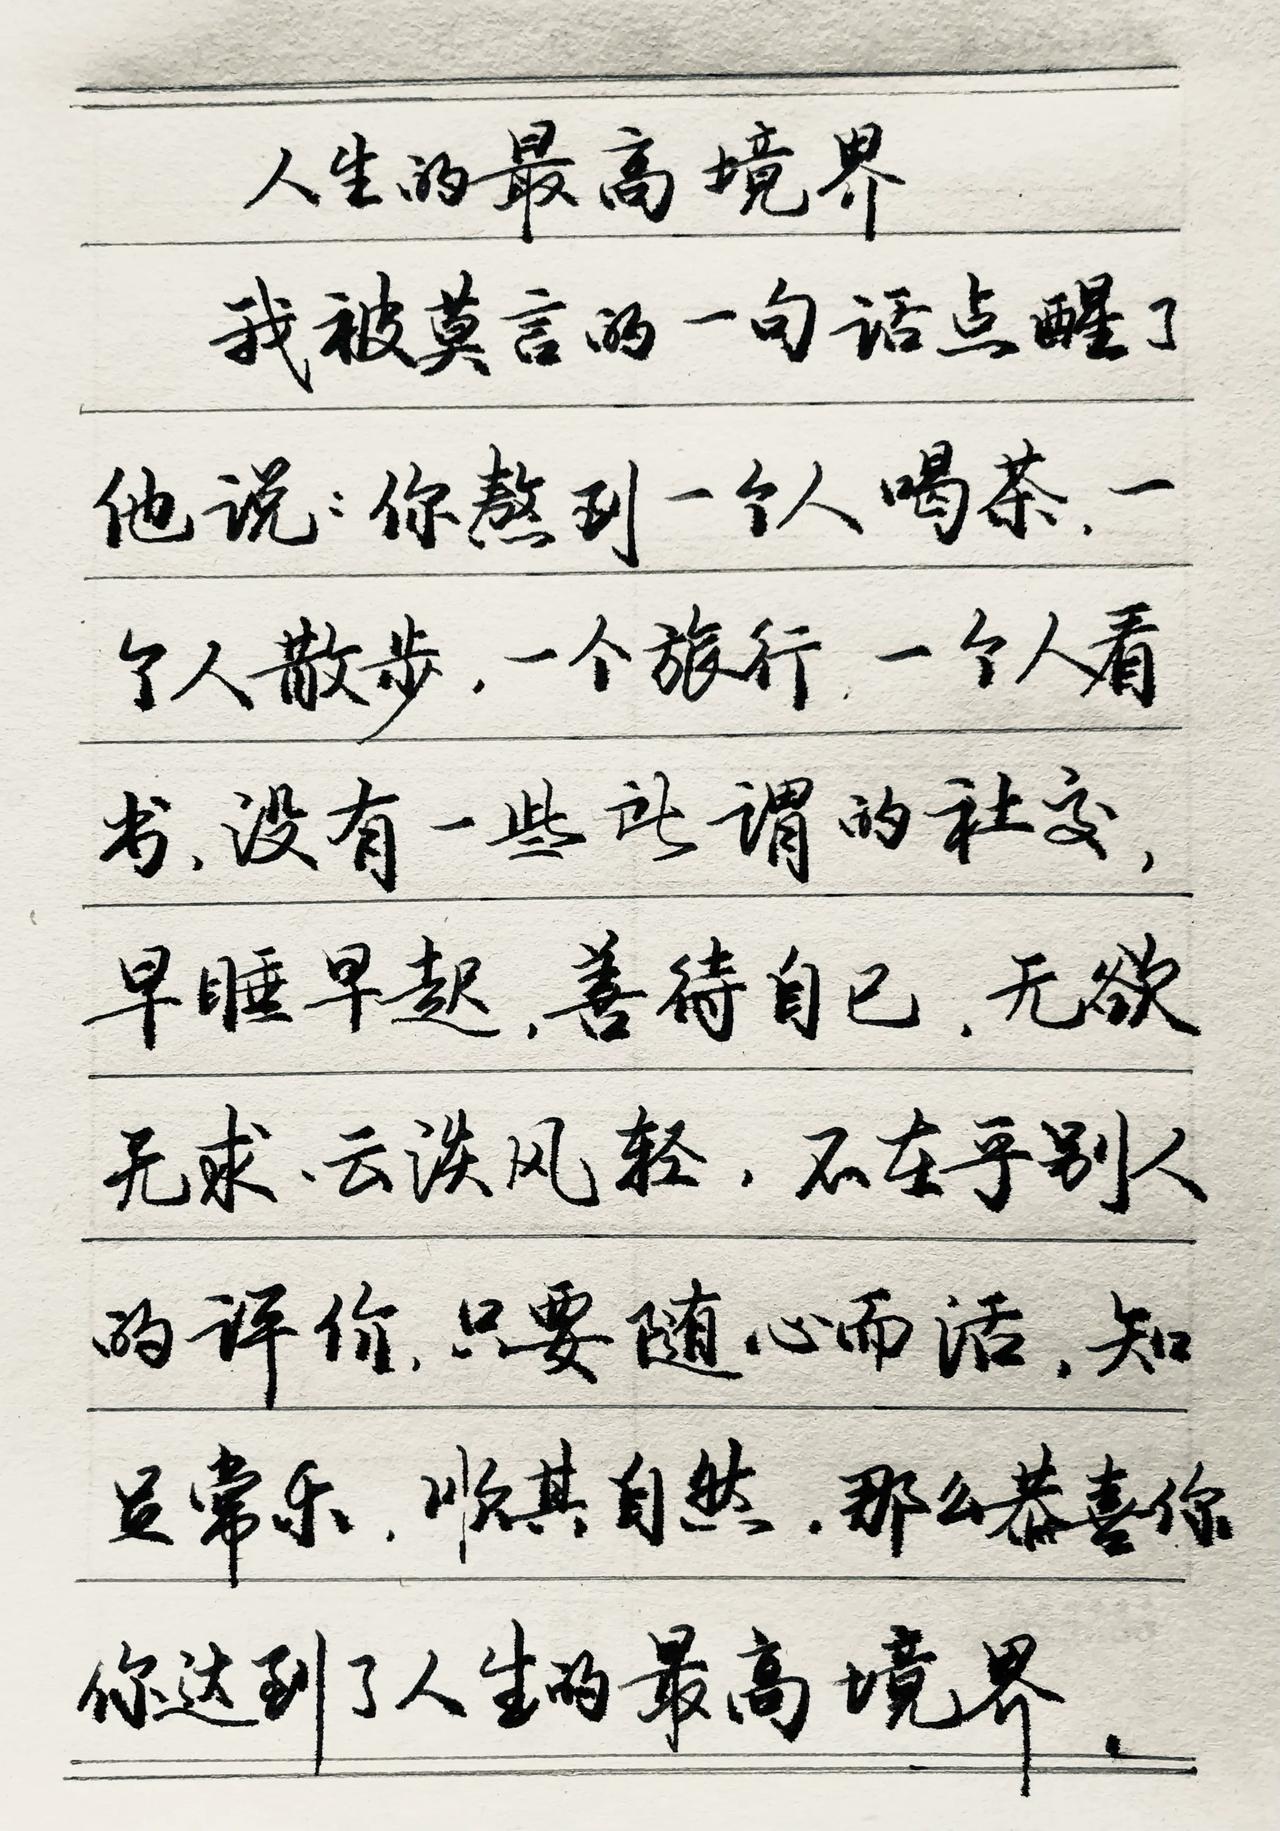 人生的最高境界
我被莫言的一句话点醒了
他说:你熬到一个人喝茶,一
个人散步,一个旅行,一个人看
书,没有一些所谓的社交,
早睡早起,善待自已,无欲
无求,云淡风轻,不在乎别人
的评价,只要随心而活,知
足常乐,顺其自然,那么恭喜你
你达到了人生的最高境界.